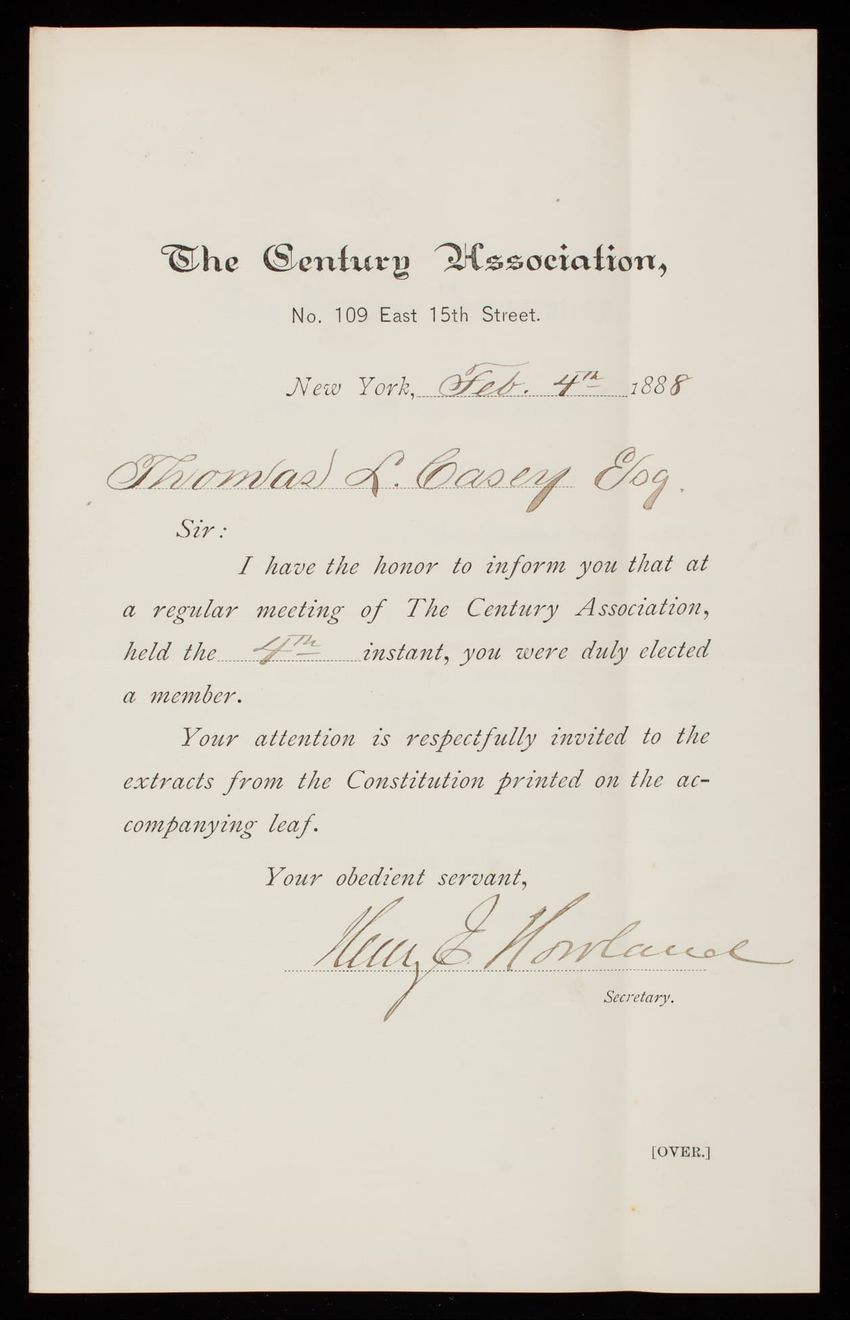 The Century Association,
No. 109 East 15th Street.
New York, Feb. 4th 1888
Thom(as) L. Casey Esq.
Sir:
I have the honor to inform you that at
a regular meeting of The Century Association,
held the 4th instant, you were duly elected
a member.
Your attention is respectfully invited to the
extracts from the Constitution printed on the ac-
companying leaf.
Your obedient servant,
Henry E. Howland
Secretary.
[OVER.]